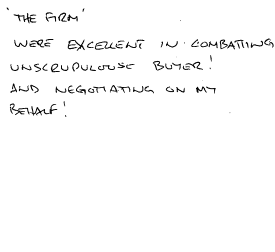 'THE FIRM'
WERE EXCELLENT IN COMBATTING
UNSCRUPULOUSE BUYER!
AND NEGOTIATING ON MY
BEHALF!